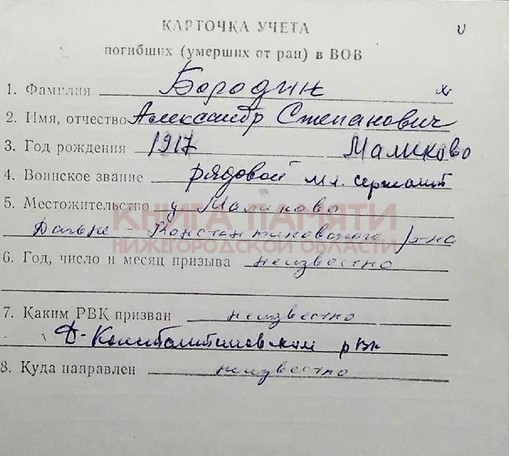 КАРТОЧКА УЧЕТА
погибших (умерших от ран) в ВОВ
1. Фамилия Бородин
2. Имя, отчество Александр Степанович
3. Год рождения 1917 Маликово
4. Воинское звание рядовой мл. сержант
5. Местожительство Маликово
КНИГА ПАМЯТИ
Дальне-Константиновского р-на
НИЖЕГОРОДСКОЙ ОБЛАСТИ
6. Год, число и месяц призыва неизвестно
7. Каким РВК призван неизвестно
Д-Константиновским рвк
8. Куда направлен неизвестно